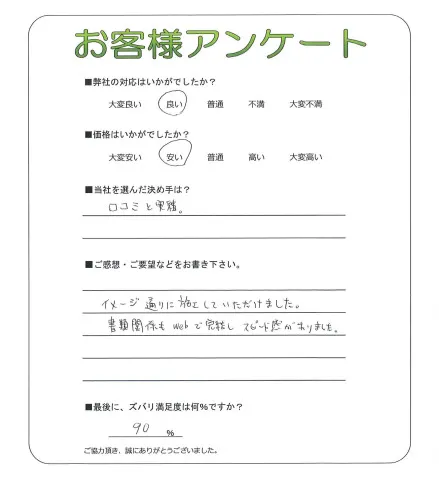 お客様アンケート
■弊社の対応はいかがでしたか？
大変良い 良い 普通 不満 大変不満
■価格はいかがでしたか？
大変安い 安い 普通 高い 大変高い
■当社を選んだ決め手は？
口コミと実績。
■ご感想・ご要望などをお書き下さい。
イメージ通りに施工していただけました。
書類関係もwebで完結しスピード感がありました。
■最後に、ズバリ満足度は何％ですか？
90 ％
ご協力頂き、誠にありがとうございました。